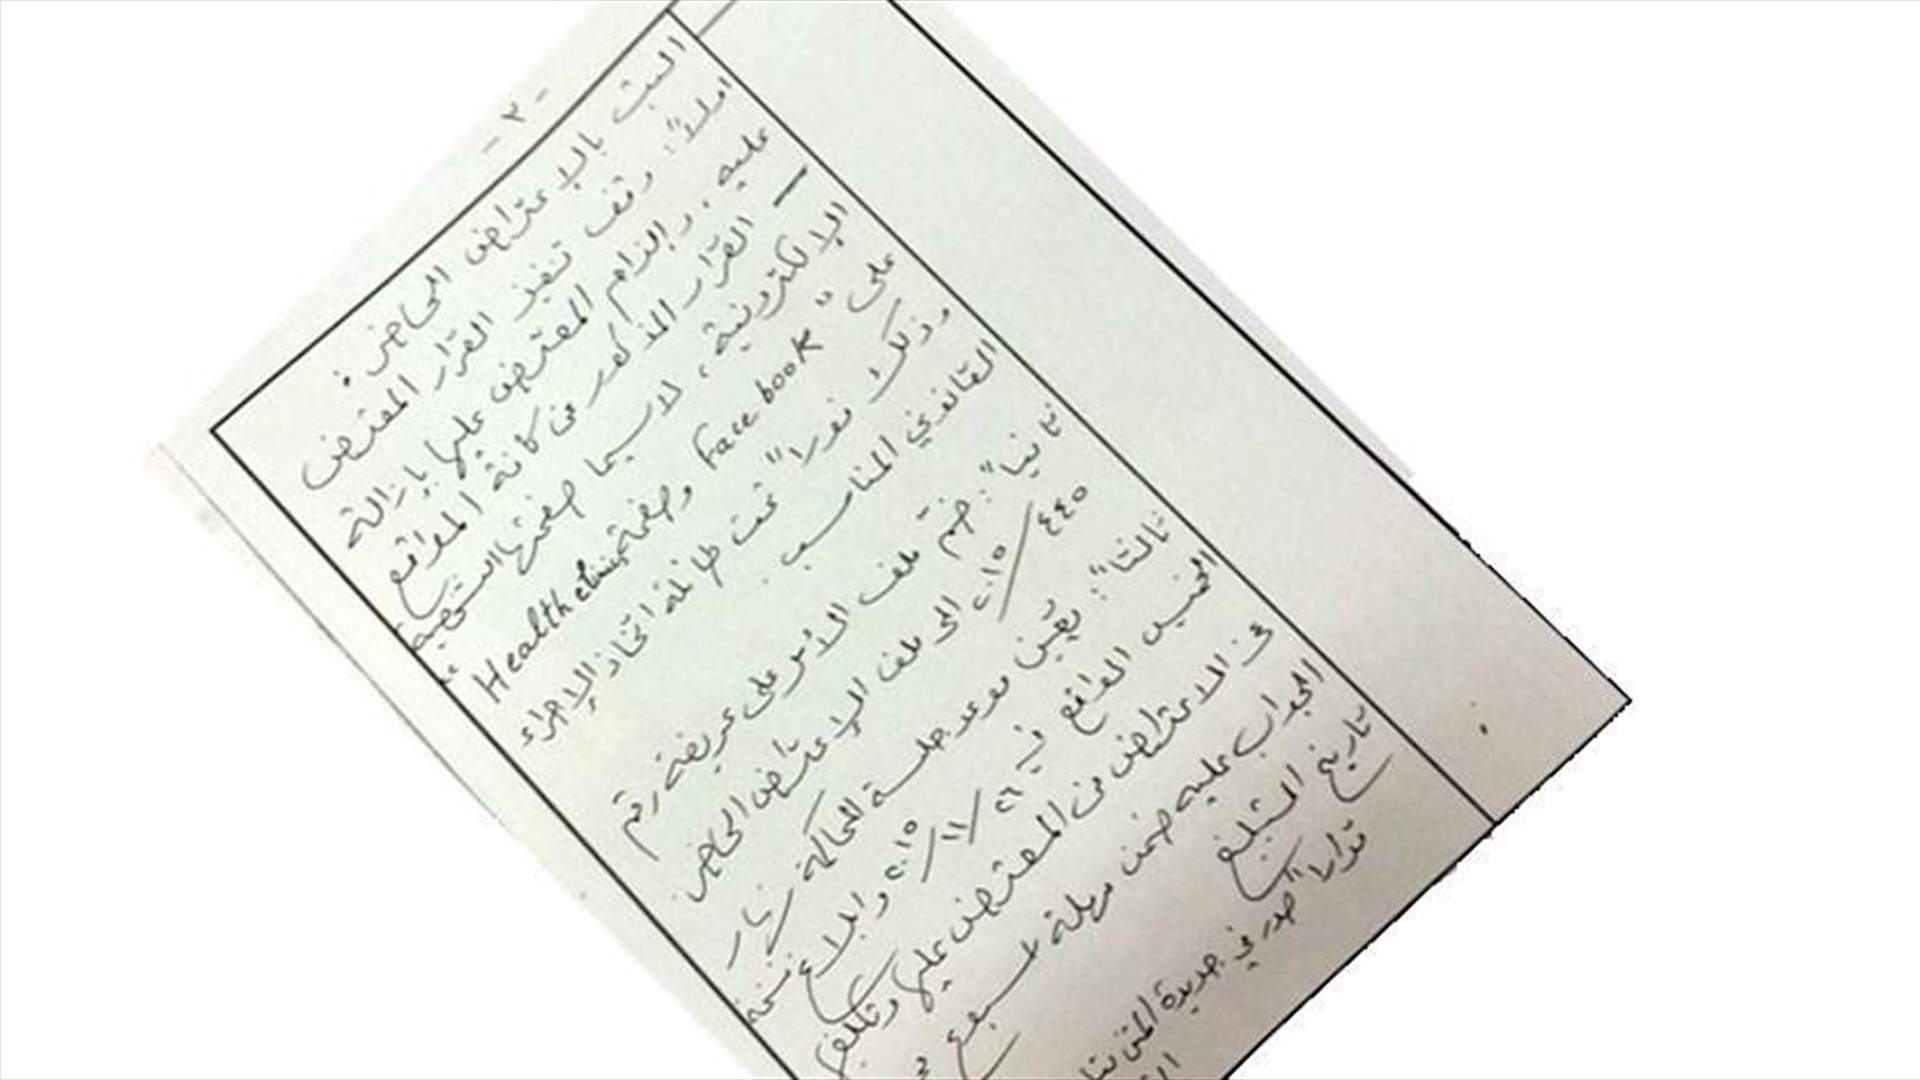 - ٢ -
البت بالاعتراض الحاضر :
اولاً : وقف تنفيذ القرار المعترض
عليه ، والزام المعترض عليها بازالة
القرار المذكور من كافة المواقع
الالكترونية ، لا سيما صفحتها الشخصية
على " Face book وصفحة Health clinic "
وذلك فوراً تحت طائلة اتخاذ الاجراء
القانوني المناسب .
ثانياً : ضم ملف الأمر على عريضة رقم
٤٤٥/٢٠١٥ الى ملف الاعتراض الحاضر .
ثالثاً : يعين موعد جلسة المحاكمة نهار
الخميس الواقع في ٢٦/١١/٢٠١٥ وابلاغ نسخة
عن الاعتراض من المعترض عليها وتكليف
الجواب عليه ضمن مهلة اسبوع من
تاريخ التبلغ
قراراً صدر في جديدة المتن